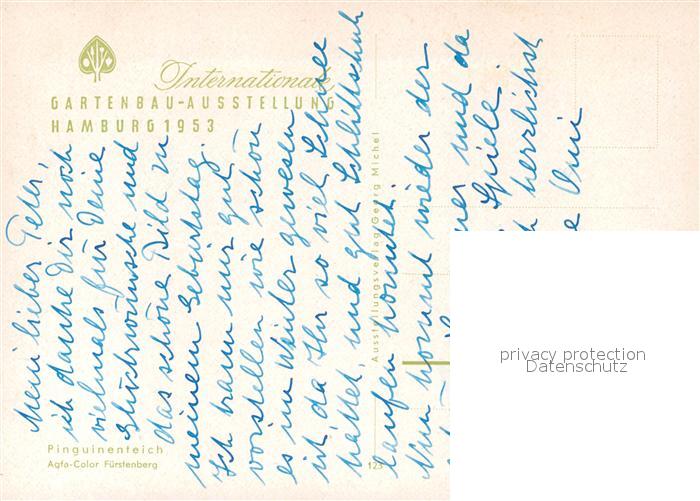 Internationale
GARTENBAU-AUSSTELLUNG
HAMBURG 1953
Mein lieber Peter,
ich danke Dir noch
vielmals für Deine
Glückwünsche und
das schöne Bild zu
meinem Geburtstag.
Ich kann mir gut
vorstellen wie schön
es im Winter gewesen
ist, da Ihr so viel Schnee
hattet, und gut Schlittschuh
laufen konntet.
Nun kommt wieder der
und da
Spiele.
herzlichst
Omi
Ausstellungsverlag Georg Michel
Pinguinenteich
Agfa-Color Fürstenberg
123
privacy protection
Datenschutz